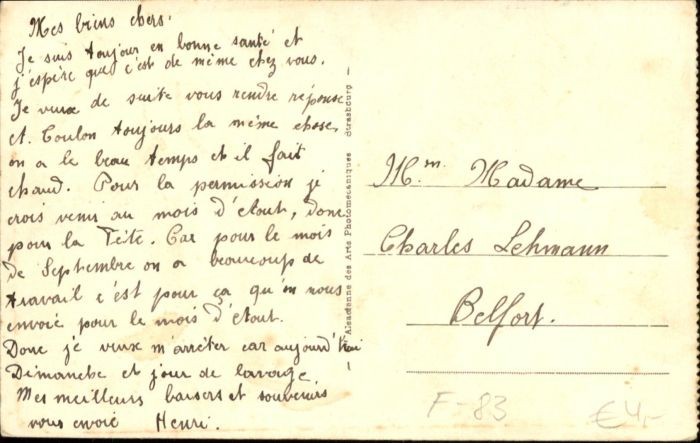 Mes biens chers.
Je suis toujour en bonne santé et
j'espère que c'est de même chez vous.
Je veux de suite vous rendre réponse
et. Toulon toujours la même chose,
on a le beau temps et il fait
chaud. Pour la permission je
crois venir au mois d'étout, donc
pour la Tête. Car pour le mois
de Septembre on a beaucoup de
travail c'est pour ça qu'on nous
envoie pour le mois d'étout.
Donc je veux m'arrêter car aujourd'hui
Dimanche et jour de lavage
Mes meilleurs baisers et souvenirs
vous envoie Henri.
Alsacienne des Arts Photomécaniques Strasbourg
M.m. Madame
Charles Lehmann
Belfort.
F-83
€4,-